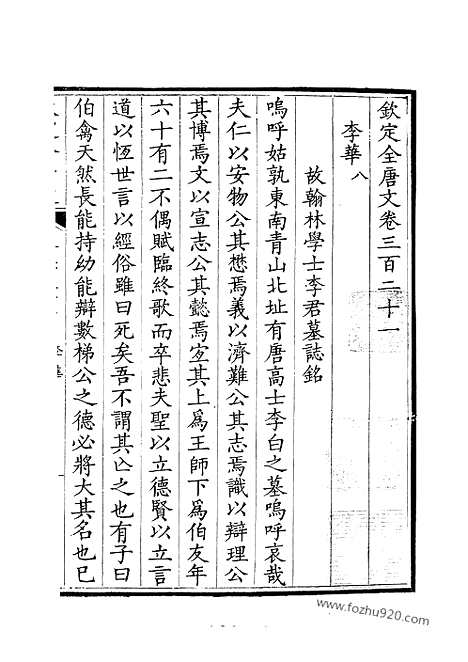 欽定全唐文卷三百二十一
李華八
故翰林學士李君墓誌銘
嗚呼姑孰東南青山北址有唐高士李白之墓嗚呼哀哉
夫仁以安物公其懋焉義以濟難公其志焉識以辯理公
其博焉文以宣志公其懿焉宜其上爲王師下爲伯友年
六十有二不偶賦臨終歌而卒悲夫聖以立德賢以立言
道以恆世言以經俗雖曰死矣吾不謂其亾之也有子曰
伯禽天然長能持幼能辯數梯公之德必將大其名也已
www.fozhu920.com